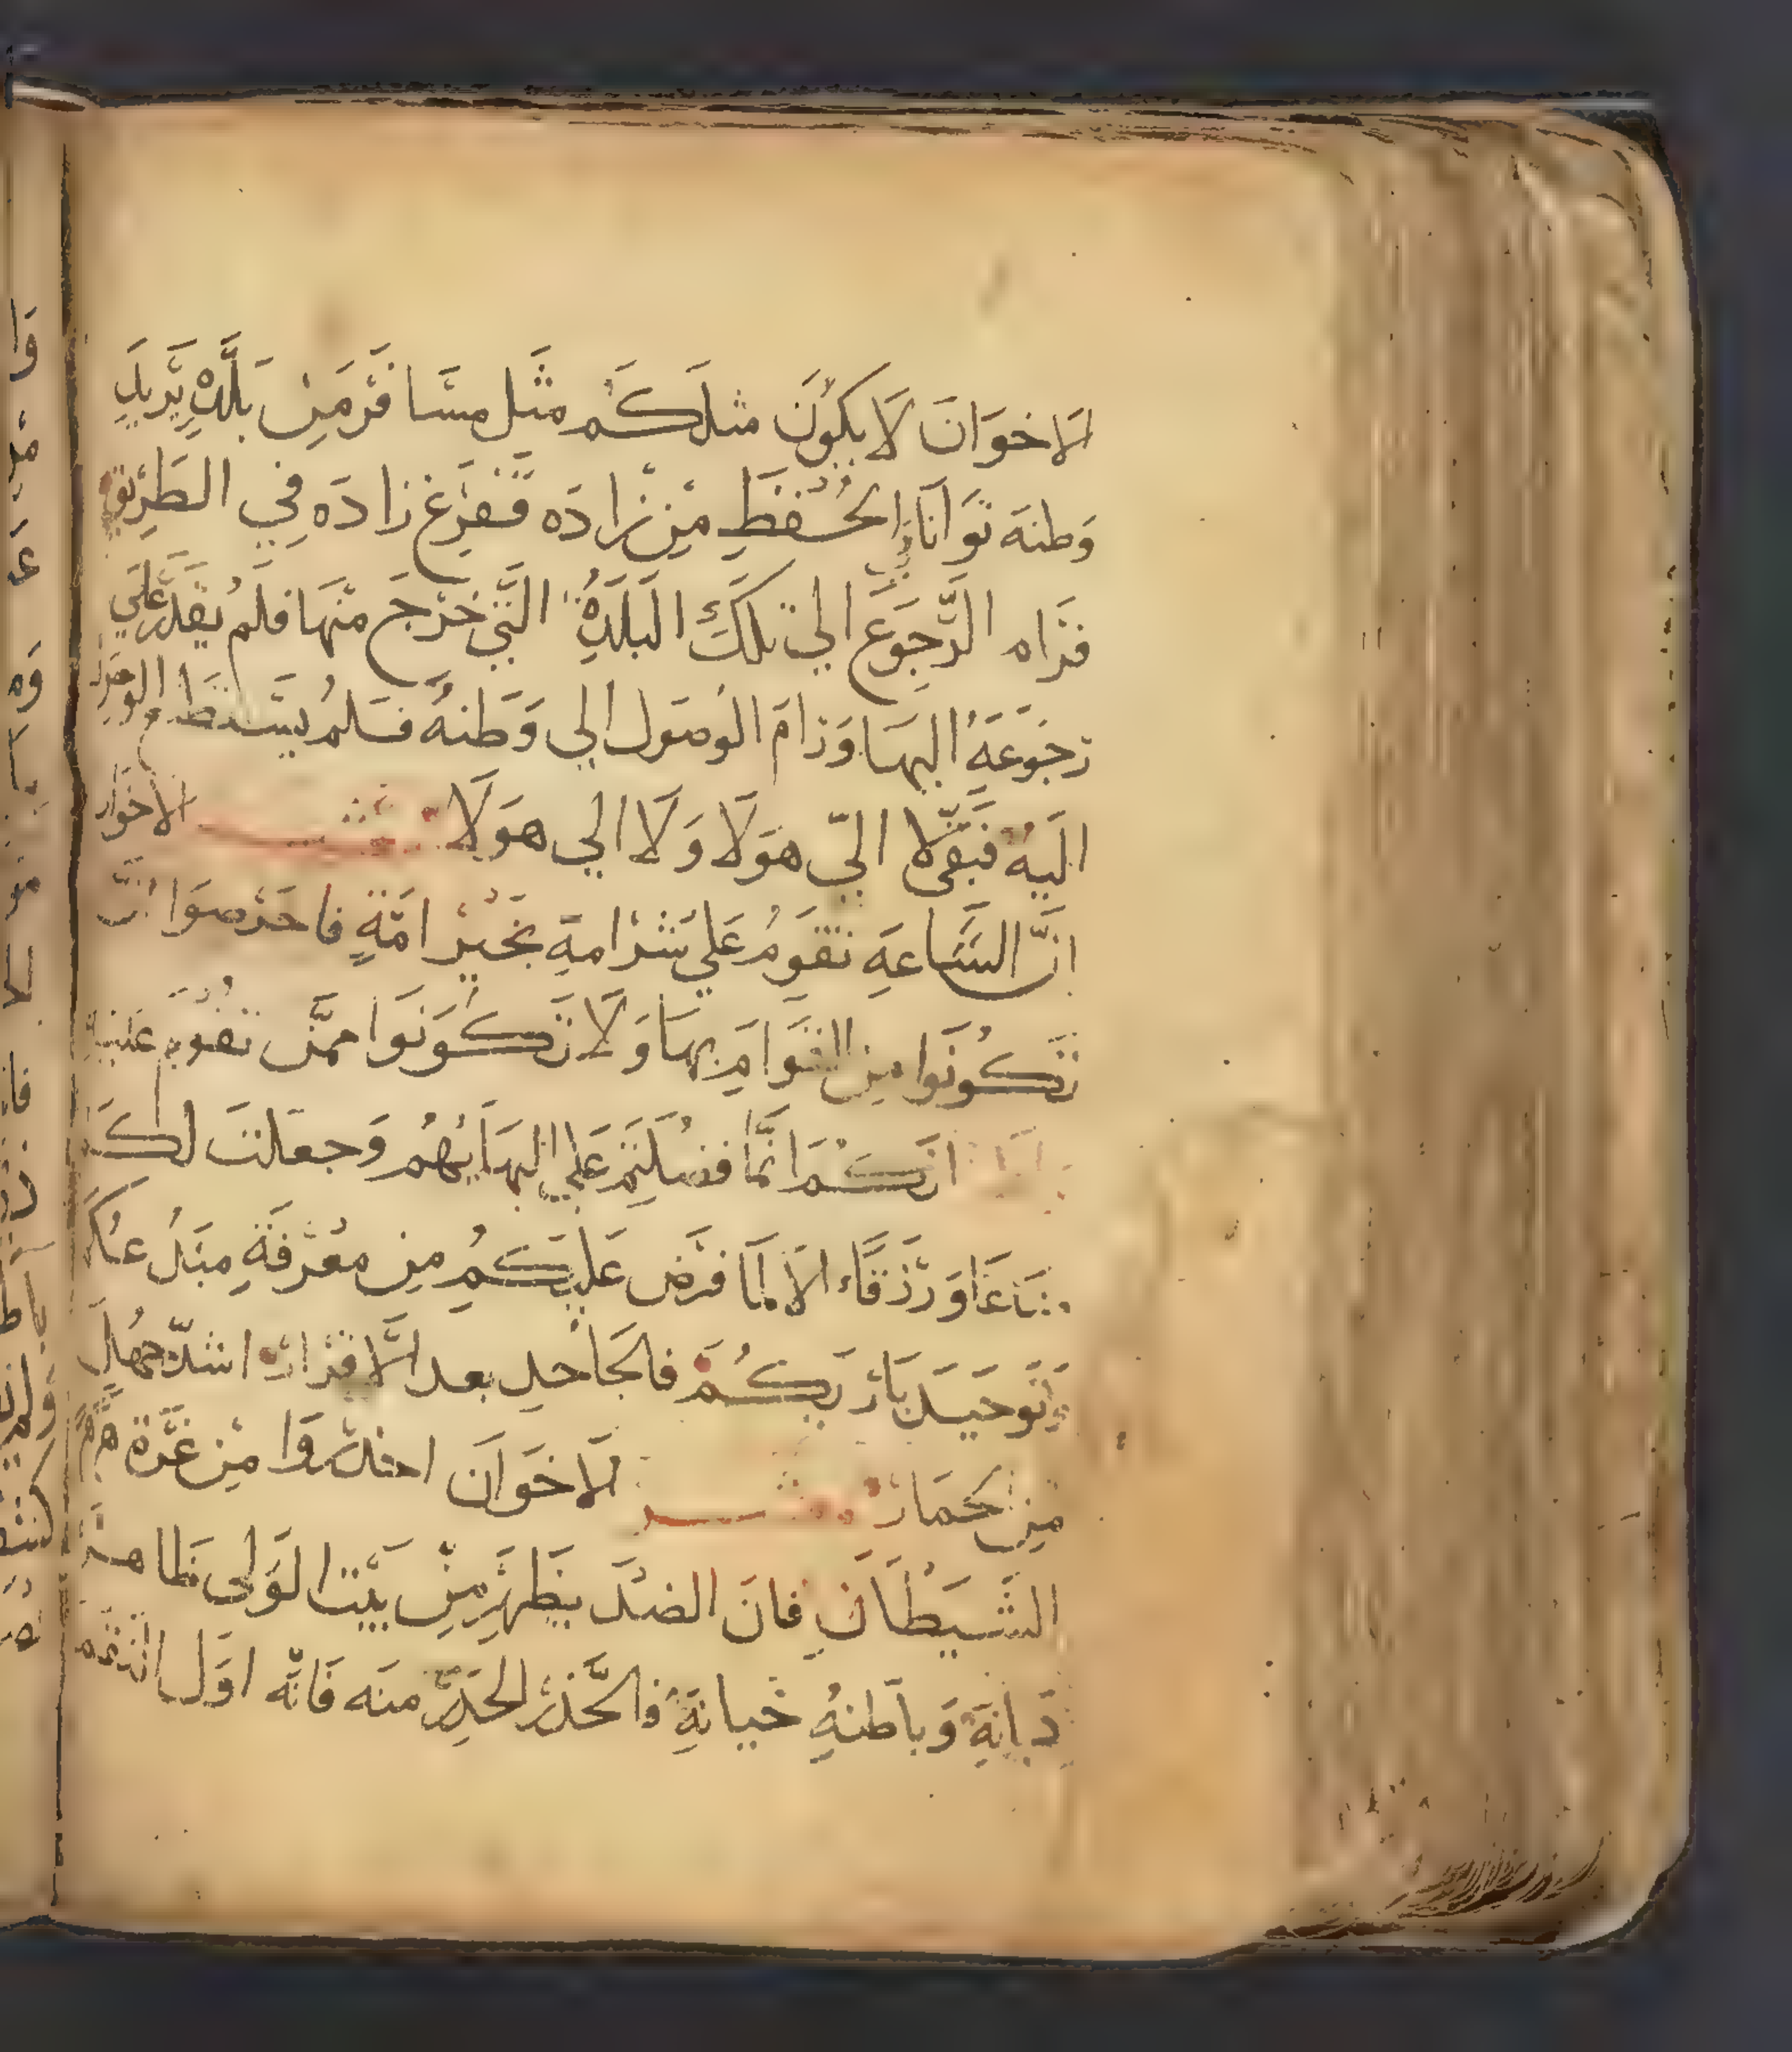 الاخوان لا يكون مثلكم مثل مسافر من بلده يريد
وطنه توانا في الحفظ من زاده ففرغ زاده في الطريق
فرام الرجوع الي تلك البلده التي خرج منها فلم يقدر علي
رجوعه اليها ورام الوصول الي وطنه فلم يستطع الوصول
اليه فبقي لا الي هولا ولا الي هولا معشر الاخوان
ان الساعه تقوم علي شر امة بخير امة فاحرصوا ان
تكونوا من القوام بها ولا تكونوا ممن تقوم عليه
انكم انما فضلتم علي البهايهم وجعلت لكم
متاعا ورزقا الا لما فرض عليكم من معرفة مبدعكم
وتوحيد باريكم فالجاحد بعد الاقرار اشد جهل
من حمار معشر الاخوان احذروا من غرة
الشيطان فان الضد يظهر من بيت الولي ظاهره
ديانة وباطنه خيانة فالحذر الحذر منه فانه اول